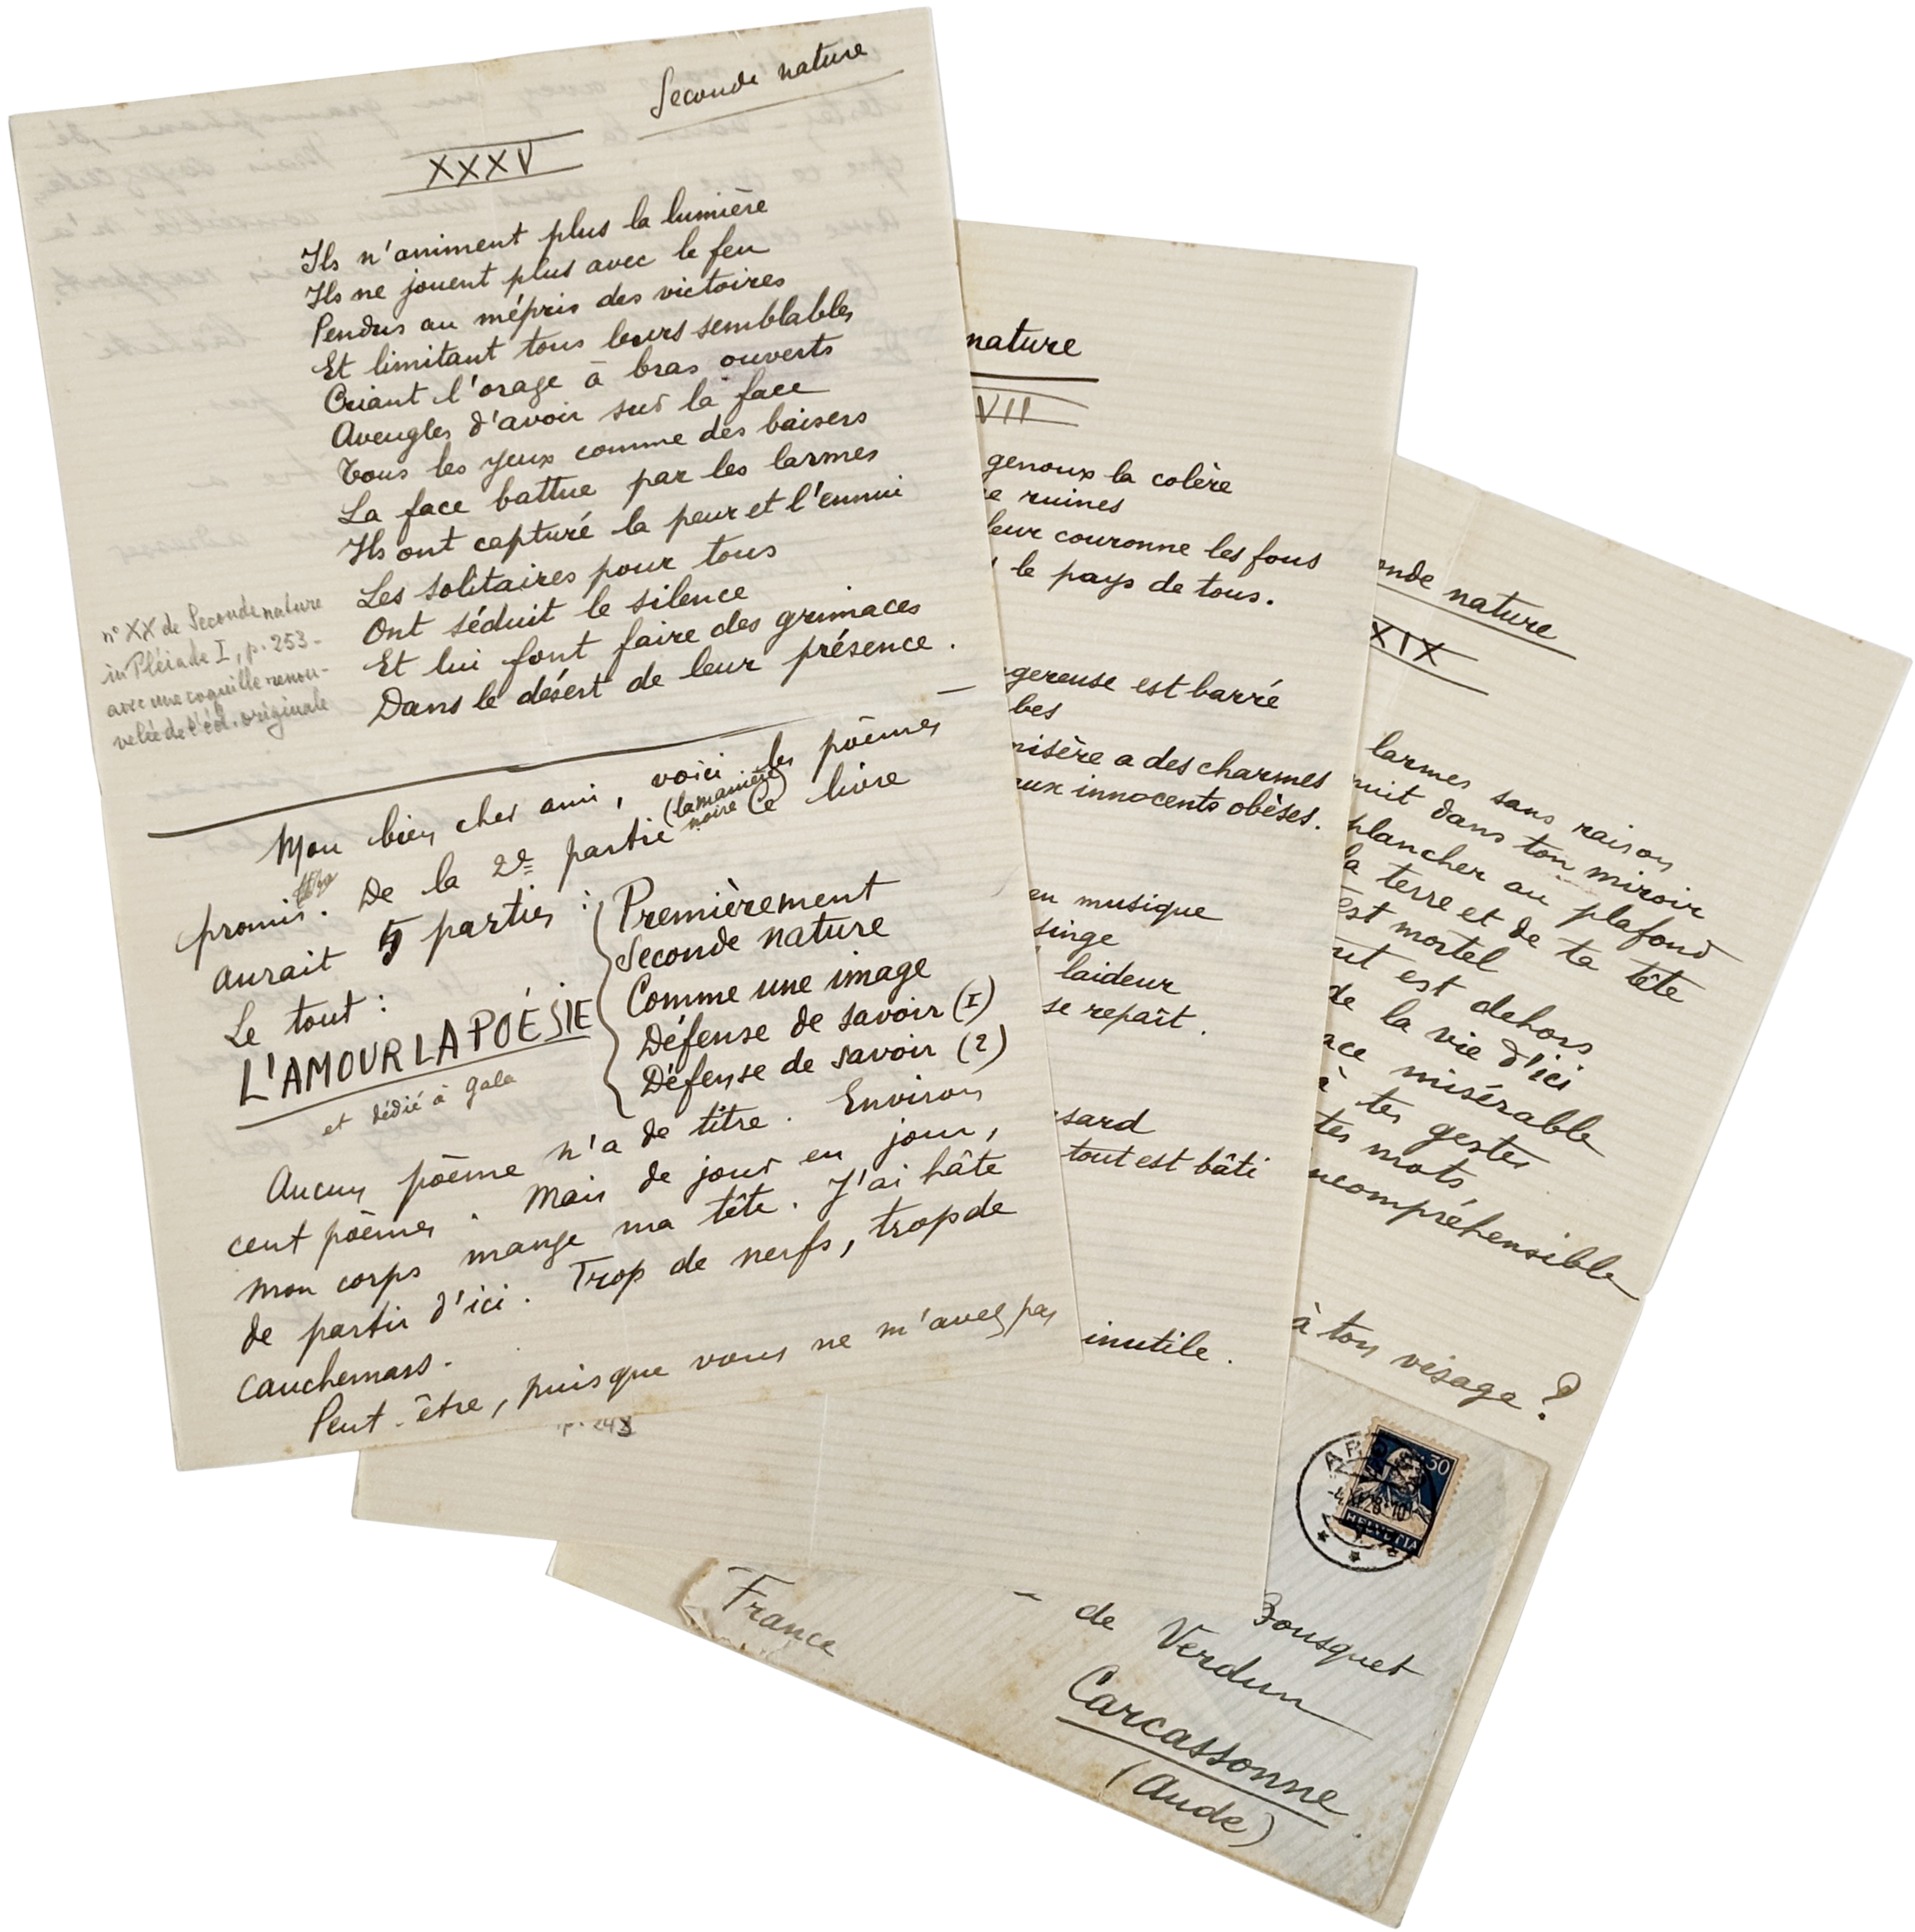 Seconde nature
XXXV
Ils n'animent plus la lumière
Ils ne jouent plus avec le feu
Pendus au mépris des victoires
Et limitant tous leurs semblables
Criant l'orage à bras ouverts
Aveugles d'avoir sur la face
Tous les yeux comme des baisers
La face battue par les larmes
Ils ont capturé la peur et l'ennui
Les solitaires pour tous
Ont séduit le silence
Et lui font faire des grimaces
Dans le désert de leur présence.
n° XX de Seconde nature
in Pléiade I, p. 253-
avec une coquille renou-
velée de l'éd. originale
Mon bien cher ami, voici les poèmes
promis. De la 2e partie (la manière noire) Ce livre
aurait 5 parties :
Le tout :
L'AMOUR LA POÉSIE
et dédié à Gala
Premièrement
Seconde nature
Comme une image
Défense de savoir (I)
Défense de savoir (2)
Aucun poème n'a de titre. Environ
cent poèmes. Mais de jour en jour,
mon corps mange ma tête. J'ai hâte
de partir d'ici. Trop de nerfs, trop de
cauchemars.
Peut-être, puisque vous ne m'avez pas
nature
VII
genoux la colère
e ruines
leur couronne les fous
le pays de tous.
gereuse est barré
bes
misère a des charmes
aux innocents obèses.
en musique
singe
laideur
se repaît.
sard
tout est bâti
inutile.
p. 248
onde nature
XIX
larmes sans raison
nuit dans ton miroir
plancher au plafond
la terre et de ta tête
est mortel
ut est dehors
de la vie d'ici
ace misérable
à tes gestes
tes mots
ncompréhensible
à ton visage ?
50
HELVETIA
Bousquet
de Verdun
Carcassonne
(Aude)
France